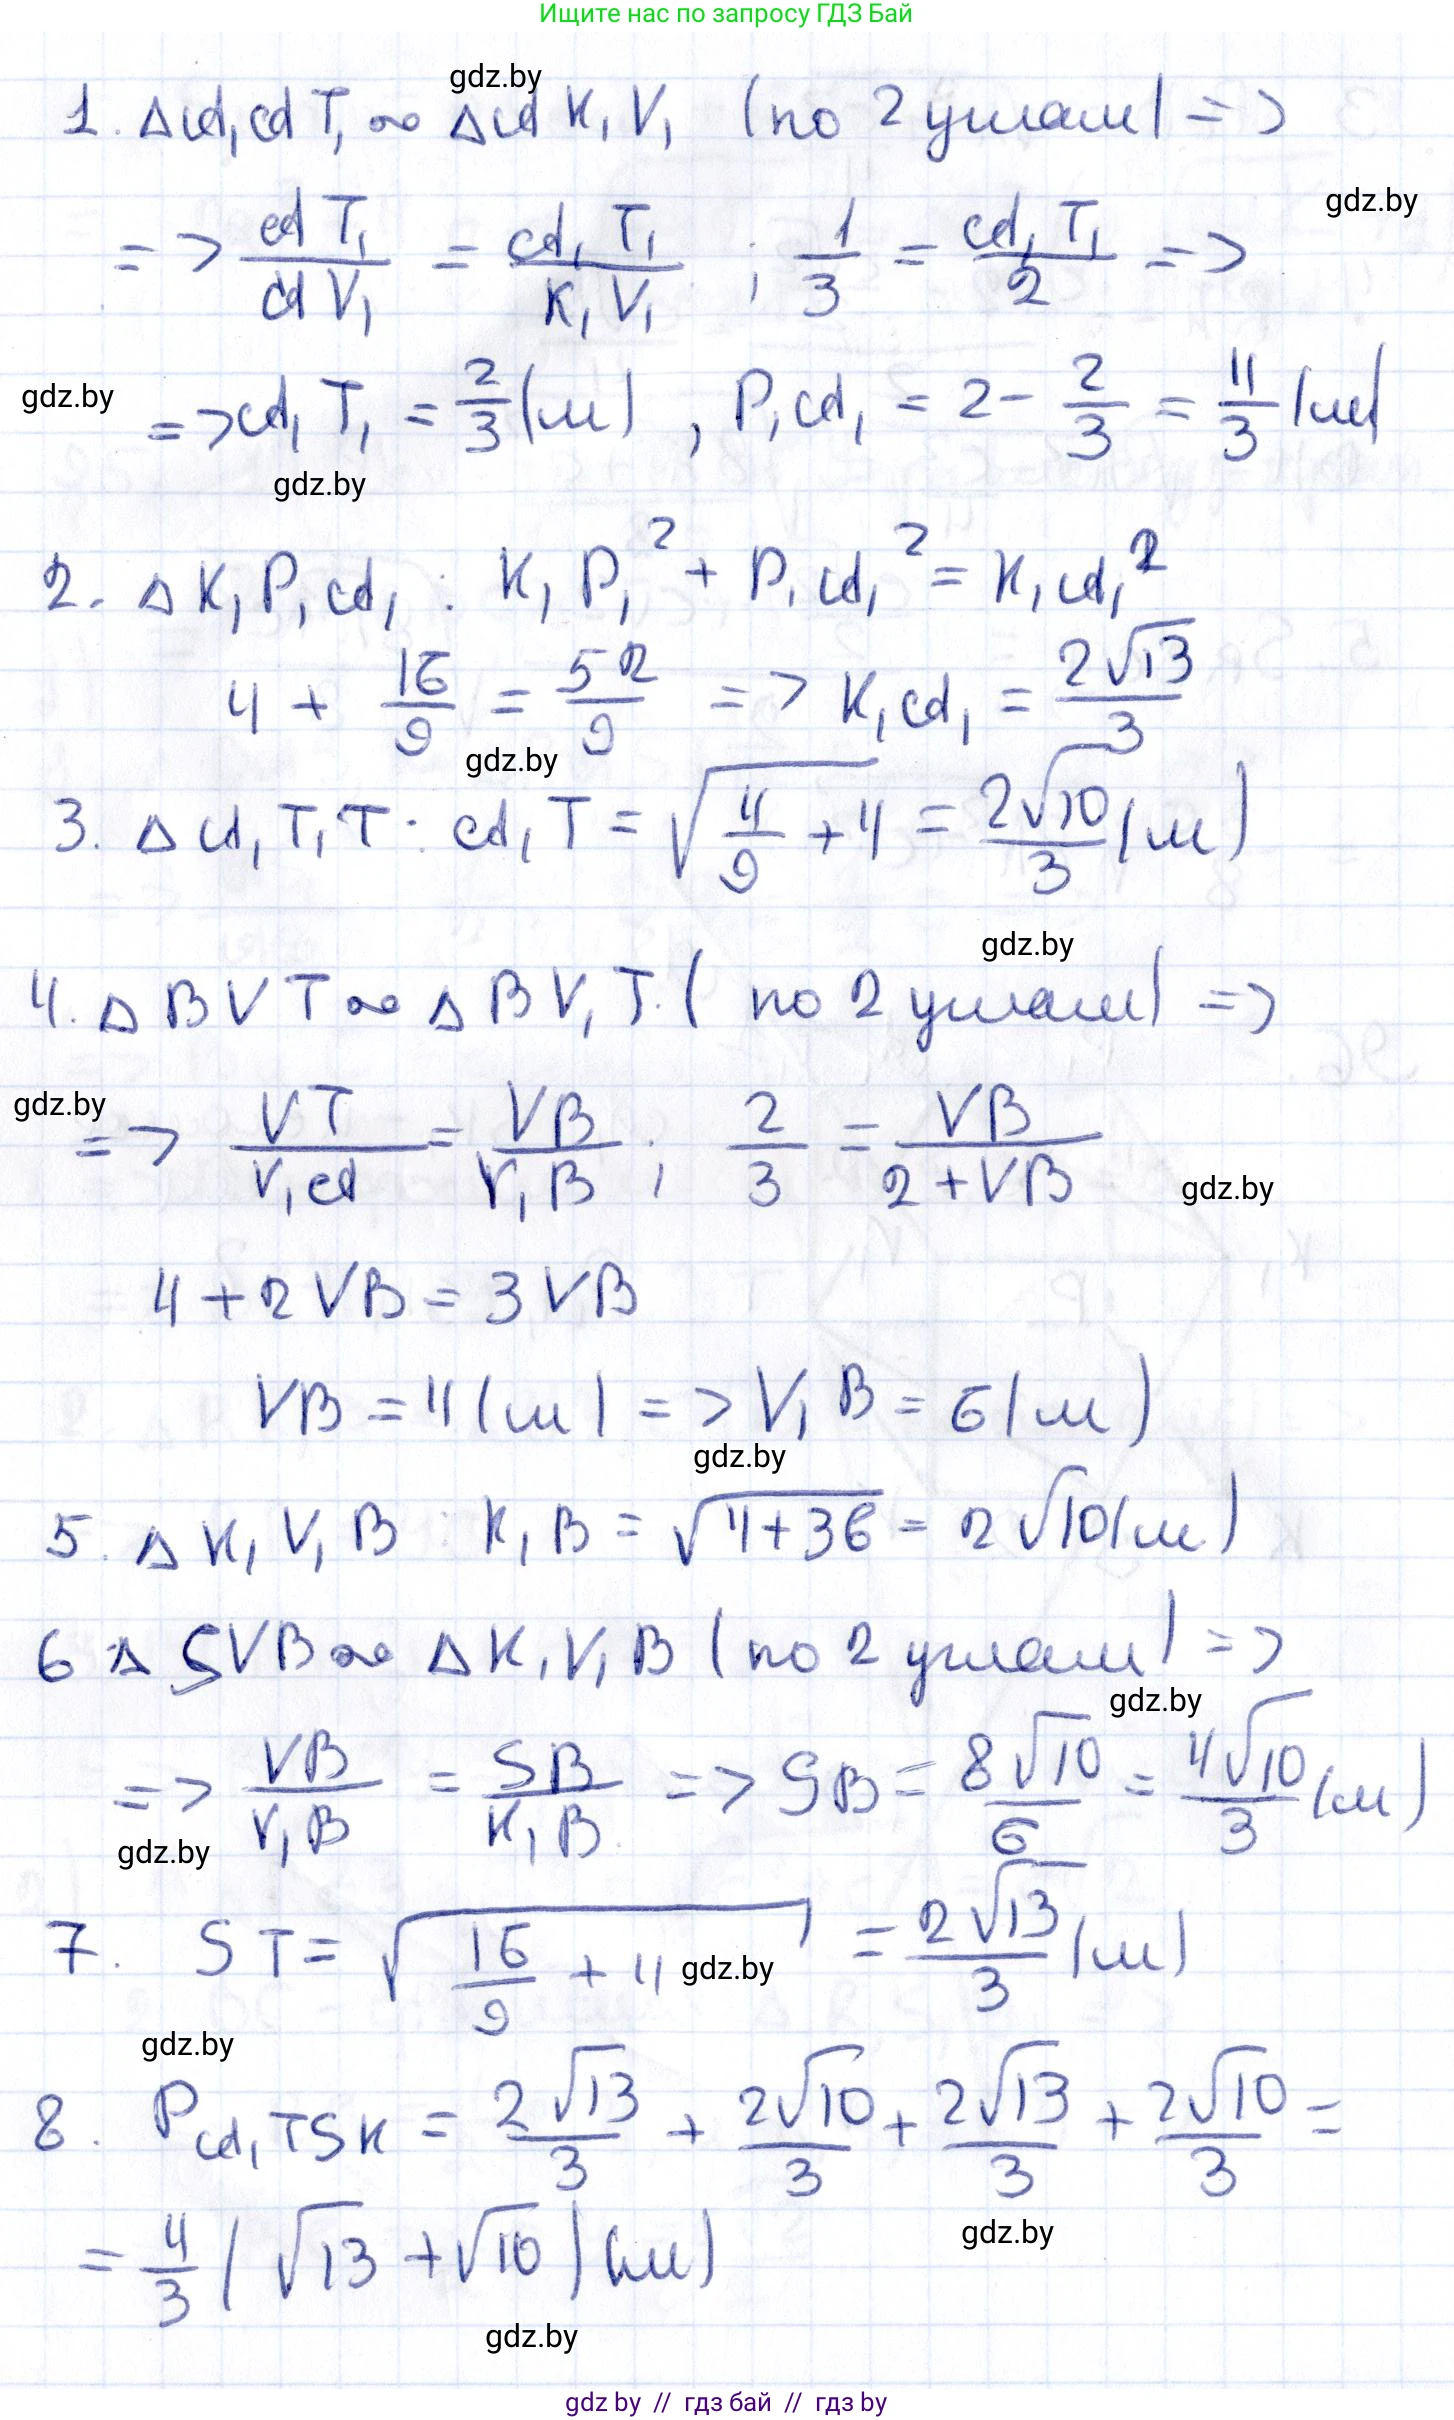 Ищите нас по запросу ГДЗ Бай
gdz.by
1. Δ cd₁ cd T₁ ∾ Δ cd K₁ V₁ (по 2 углам) =>
gdz.by
=> cd T₁ / cd V₁ = cd₁ T₁ / K₁ V₁ ; 1/3 = cd₁ T₁ / 2 =>
gdz.by
=> cd₁ T₁ = 2/3 (м), P₁ cd₁ = 2 - 2/3 = 4/3 (м)
gdz.by
2. Δ K₁ P₁ cd₁ : K₁ P₁² + P₁ cd₁² = K₁ cd₁²
4 + 16/9 = 52/9 => K₁ cd₁ = 2√13/3
gdz.by
3. Δ cd₁ T₁ T : cd₁ T = √(4/9 + 4) = 2√10/3 (м)
gdz.by
4. Δ BVT ∾ Δ BV₁T. (по 2 углам) =>
gdz.by
=> VT / V₁cd = VB / V₁B ; 2/3 = VB / (2 + VB)
gdz.by
4 + 2VB = 3VB
VB = 4 (м) => V₁B = 6 (м)
gdz.by
5. Δ K₁ V₁ B : K₁B = √(4+36) = 2√10 (м)
6 Δ SVB ∾ Δ K₁V₁B (по 2 углам) =>
gdz.by
=> VB / V₁B = SB / K₁B => SB = 8√10/6 = 4√10/3 (м)
gdz.by
7. ST = √(16/9 + 4) = 2√13/3 (м)
gdz.by
gdz.by
8. P cd₁TSK = 2√13/3 + 2√10/3 + 2√13/3 + 2√10/3 =
gdz.by
= 4/3 (√13 + √10) (м)
gdz.by
gdz by // гдз бай // гдз by